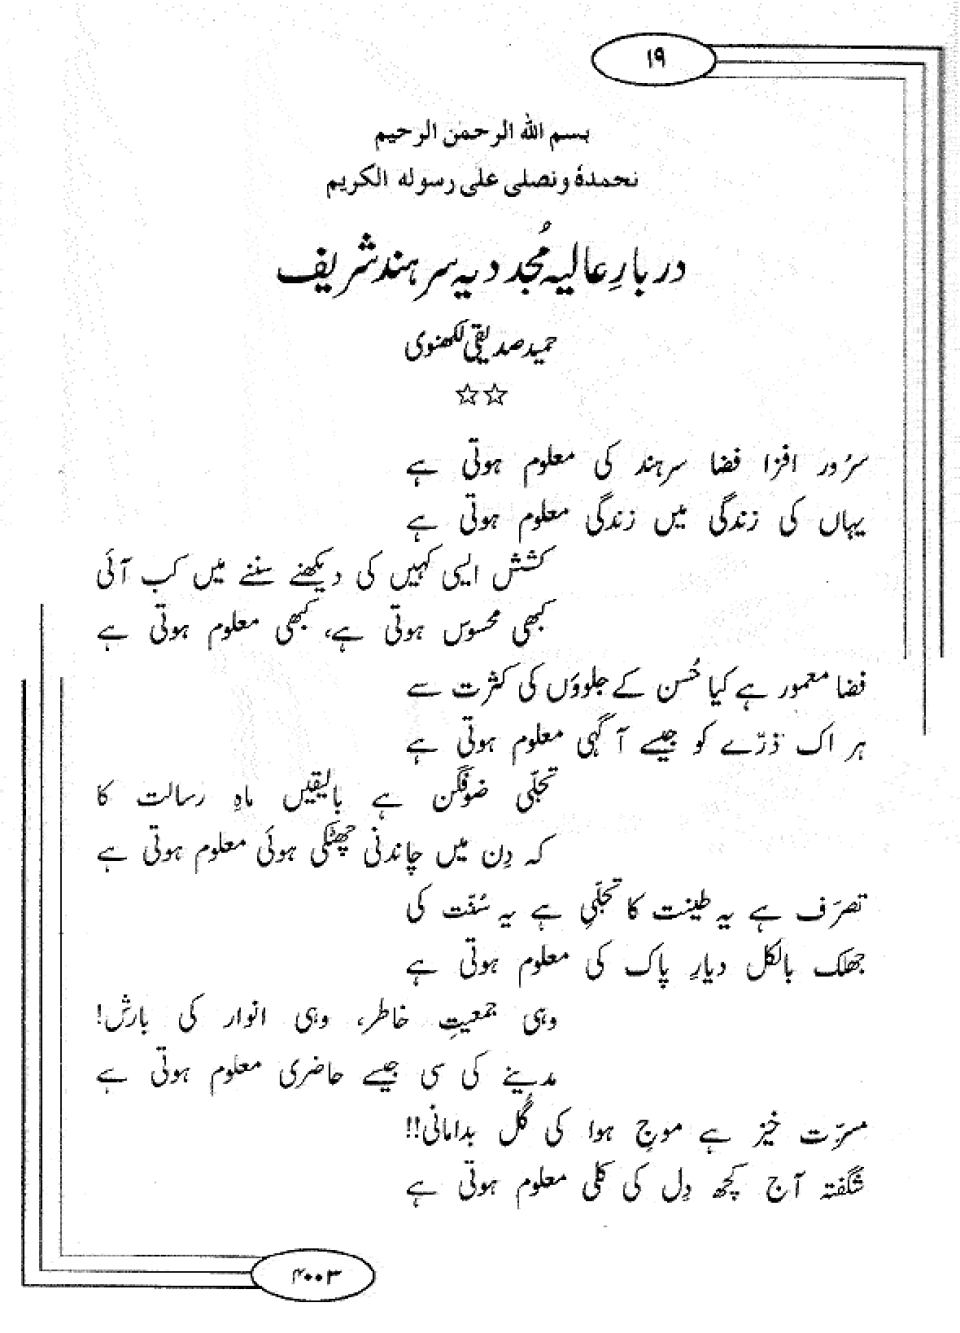 ۱۹
بسم اللہ الرحمن الرحیم
نحمدہٗ ونصلی علی رسولہ الکریم
دربارِ عالیہ مُجددیہ سرہند شریف
حمید صدیقی لکھنوی
☆☆
سرُور افزا فضا سرہند کی معلوم ہوتی ہے
یہاں کی زندگی میں زندگی معلوم ہوتی ہے
کشش ایسی کہیں کی دیکھنے سننے میں کب آئی
کبھی محسوس ہوتی ہے، کبھی معلوم ہوتی ہے
فضا معمور ہے کیا حُسن کے جلووٗں کی کثرت سے
ہر اک ذرّے کو جیسے آگہی معلوم ہوتی ہے
تجلّی ضوفگن ہے بالیقیں ماہِ رسالت کا
کہ دِن میں چاندنی چھٹکی ہوئی معلوم ہوتی ہے
تصرّف ہے یہ طینت کا تجلّی ہے یہ سُنّت کی
جھلک بالکل دیارِ پاک کی معلوم ہوتی ہے
وہی جمعیتِ خاطر، وہی انوار کی بارش!
مدینے کی سی جیسے حاضری معلوم ہوتی ہے
مسرّت خیز ہے موجِ ہوا کی گُل بدامانی!!
شگفتہ آج کچھ دِل کی کلی معلوم ہوتی ہے
۴۰۰۳